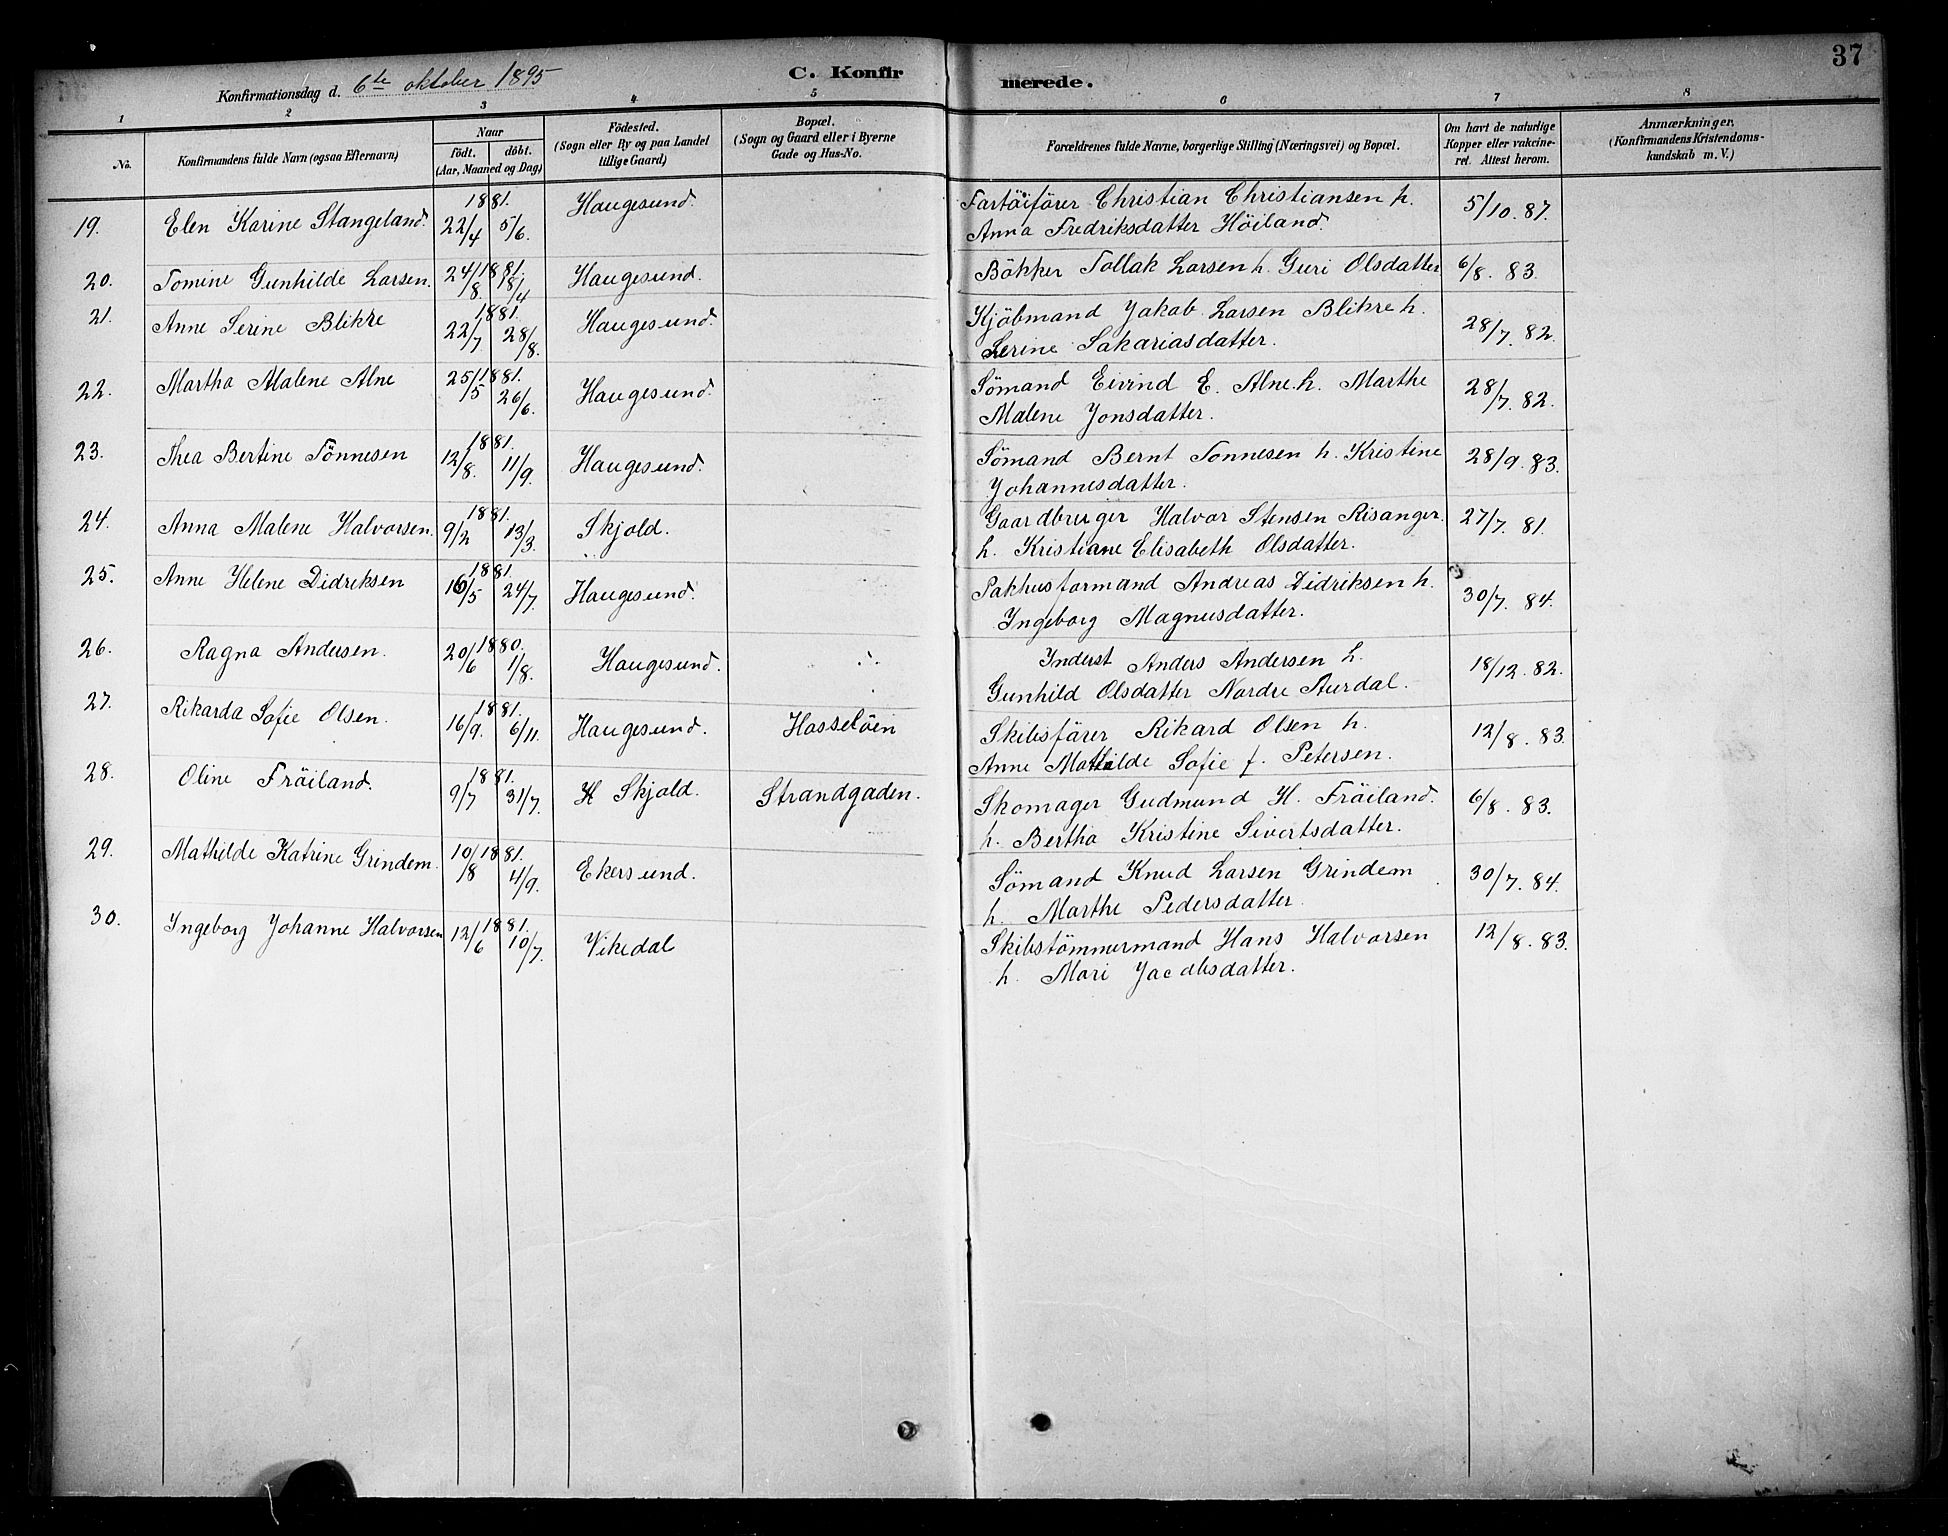 37
Konfirmationsdag d. 6te oktober 1895
C. Konfirmerede.
1 2 3 4 5 6 7 8
No.
Konfirmandens fulde Navn (ogsaa Efternavn)
Naar
Födt. döbt.
(Aar, Maaned og Dag)
Födested.
(Sogn eller By og paa Landet
tillige Gaard)
Bopæl.
(Sogn og Gaard eller i Byerne
Gade og Hus-No.
Forældrenes fulde Navne, borgerlige Stilling (Næringsvei) og Bopæl.
Om havt de naturlige
Kopper eller vakcine-
ret. Attest herom.
Anmærkninger.
(Konfirmandens Kristendoms-
kundskab m. V.)
19. Elen Karine Stangeland. 1881. 22/4 5/6. Haugesund. Fartöiförer Christian Christiansen h. 5/10. 87.
Anna Fredriksdatter Höiland.
20. Tomine Gunhilde Larsen. 1881. 24/8. 18/4 Haugesund. Bökker Tollak Larsen h. Guri Olsdatter 6/8. 83.
21. Anne Serine Blikre 1881. 22/7 28/8. Haugesund. Kjöbmand Jakob Larsen Blikre h. 28/7. 82.
Serine Sakariasdatter.
22. Martha Malene Alne 1881. 25/5 26/6. Haugesund. Sömand Eivind E. Alne h. Marthe 28/7. 82.
Malene Jonsdatter.
23. Thea Bertine Tönnesen 1881. 12/8. 11/9. Haugesund. Sömand Bernt Tonnesen h. Kristine 28/9. 83.
Johannesdatter.
24. Anna Malene Halvorsen. 1881. 9/2 13/3. Skjold. Gaardbruger Halvor Stensen Risanger. 27/7. 81.
h. Kristiane Elisabeth Olsdatter.
25. Anne Helene Didriksen 1881. 16/5 24/7. Haugesund. Pakhusformand Andreas Didriksen h. 30/7. 84.
Ingeborg Magnusdatter.
26. Ragna Andersen. 1880. 20/6 1/8. Haugesund. Inderst Anders Andersen h. 18/12. 82.
Gunhild Olsdatter Nordre Aurdal.
27. Rikarda Sofie Olsen. 1881. 16/9. 6/11. Haugesund. Hasselöen Skibsförer Rikard Olsen h. 12/8. 83.
Anne Mathilde Sofie f. Petersen.
28. Oline Fröiland. 1881. 9/7 31/7. H Skjold. Strandgaden. Skomager Gudmund H. Fröiland. 6/8. 83.
h. Bertha Kristine Sivertsdatter.
29. Mathilde Katrine Grindem. 1881. 10/8 4/9. Ekersund. Sömand Knud Larsen Grindem 30/7. 84.
h. Marthe Pedersdatter.
30. Ingeborg Johanne Halvorsen 1881. 12/6 10/7. Vikedal Skibstömmermand Hans Halvorsen 12/8. 83.
h. Mari Jacobsdatter.